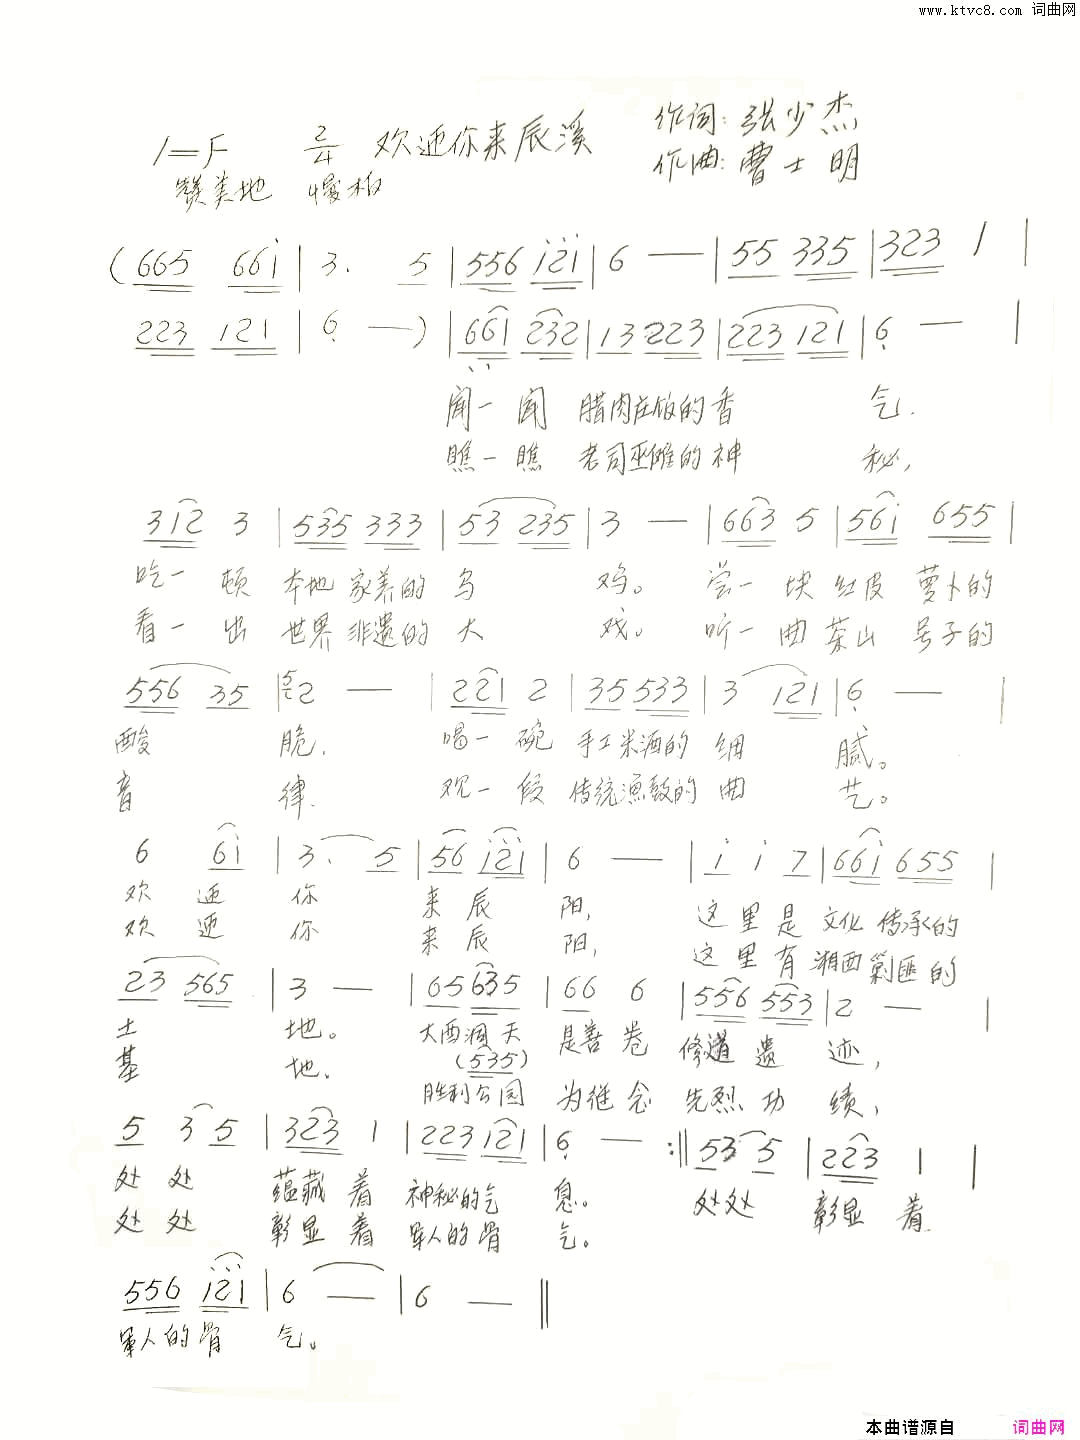 www.ktvc8.com 词曲网
1=F 2/4 欢迎你来辰溪 作词:张少杰
赞美地 慢板 作曲:曹士明
(665 66i | 3. 5 | 556 i2i | 6 — | 55 335 | 323 1 |
223 121 | 6 — ) | 661 232 | 13 223 | 223 121 | 6 — |
闻一闻 腊肉在饭的香 气.
瞧一瞧 老司巫傩的神 秘,
312 3 | 535 333 | 53 235 | 3 — | 663 5 | 56i 655 |
吃一顿 本地家养的乌 鸡。 尝一块红皮萝卜的
看一出 世界非遗的大 戏。 听一曲茶山号子的
556 35 | 52 — | 221 2 | 35 533 | 3 121 | 6 — |
酸 脆. 喝一碗 手工米酒的细 腻。
音 律. 观一段 传统渔鼓的曲 艺。
6 6i | 3. 5 | 56 i2i | 6 — | i i 7 | 66i 655 |
欢迎 你 来辰 阳, 这里是文化传承的
欢迎 你 来辰 阳, 这里有湘西剿匪的
23 565 | 3 — | 65 635 | 66 6 | 556 553 | 2 — |
土 地。 大酉洞天 是善卷 修道遗 迹,
(535)
基 地. 胜利公园 为纪念 先烈功 绩,
5 3 5 | 323 1 | 223 121 | 6 — :‖ 53 5 | 223 1 |
处处 蕴藏着 神秘的气 息。 处处 彰显着
处处 彰显着 军人的骨 气。
556 i2i | 6 — | 6 — ‖
军人的骨 气。
本曲谱源自 词曲网